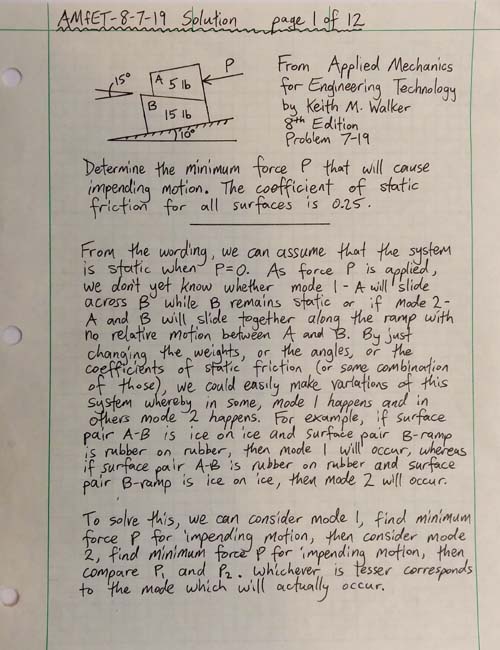 AMfET-8-7-19 Solution page 1 of 12
15°
A 5 lb
P
B
15 lb
10°
From Applied Mechanics
for Engineering Technology
by Keith M. Walker
8th Edition
Problem 7-19
Determine the minimum force P that will cause
impending motion. The coefficient of static
friction for all surfaces is 0.25.
From the wording, we can assume that the system
is static when P=0. As force P is applied,
we don't yet know whether mode 1 - A will slide
across B while B remains static or if mode 2-
A and B will slide together along the ramp with
no relative motion between A and B. By just
changing the weights, or the angles, or the
coefficients of static friction (or some combination
of those), we could easily make variations of this
system whereby in some, mode 1 happens and in
others mode 2 happens. For example, if surface
pair A-B is ice on ice and surface pair B-ramp
is rubber on rubber, then mode 1 will occur, whereas
if surface pair A-B is rubber on rubber and surface
pair B-ramp is ice on ice, then mode 2 will occur.
To solve this, we can consider mode 1, find minimum
force P for impending motion, then consider mode
2, find minimum force P for impending motion, then
compare P₁ and P₂. Whichever is lesser corresponds
to the mode which will actually occur.